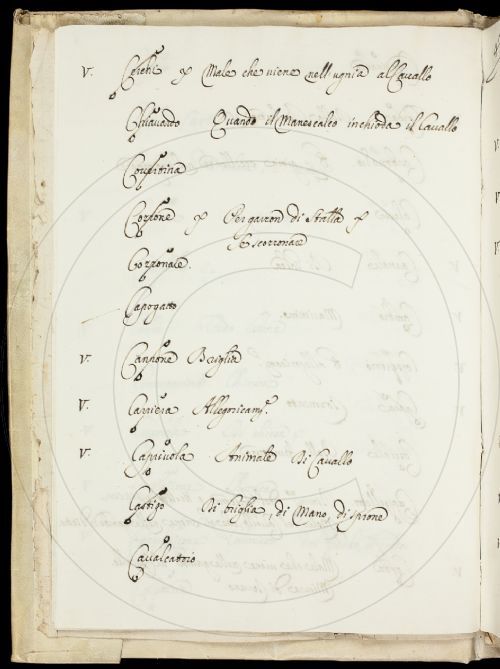 V. Chieni p Male che viene nell ugnia al Cavallo
Chiavardo Quando il Manescalco inchioda il Cavallo
Covertina
Corsone p Per garzon di Stalla p
Se scozzonare
Capogatto
V. Canzone Briglia
V. Carriera Allegoricam.e
V. Capriola Animale Di Cavallo
Castigo Di briglia, di Mano, di sprone
Cavalcatoio